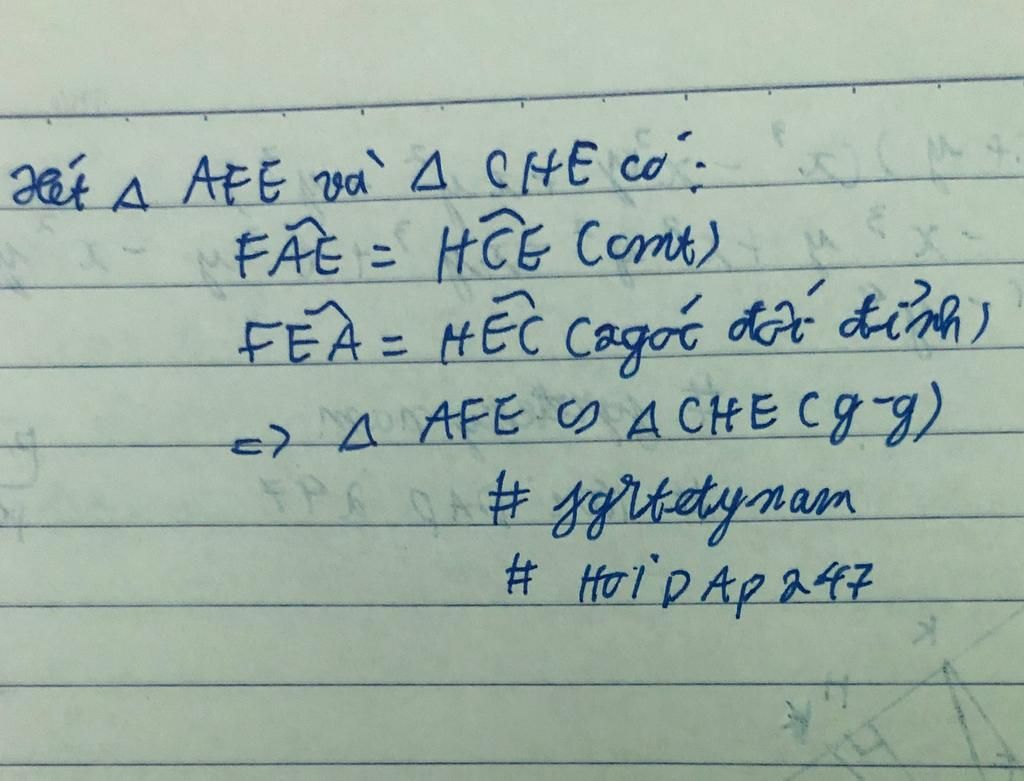 Xét Δ AFE và Δ CHE có:
FÂE = HĈE (cmt)
FÊA = HÊC (2góc đối đỉnh)
=> Δ AFE ∽ Δ CHE (g-g)
# HOIDAP247